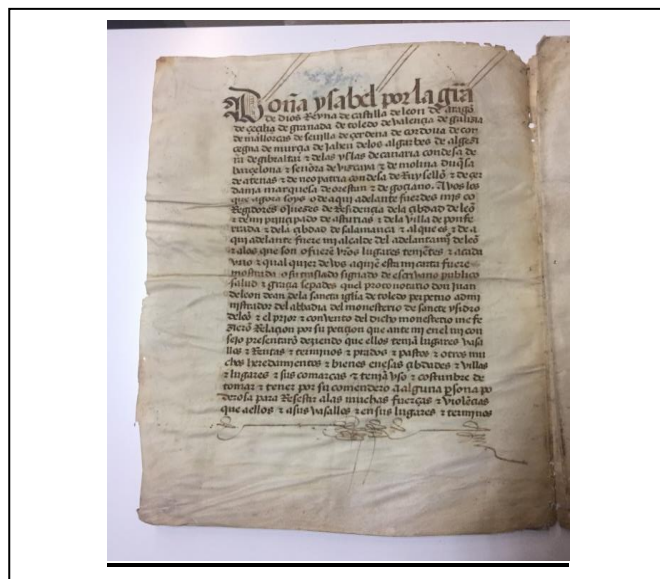 Doña ysabel por la gr̃a
de dios Reyna de castilla de leon de aragõ
de çeçilia de granada de toledo de valençia de galizia
de mallorcas de seuilla de çerdeña de cordoua de cor
cega de murçia de jahen delos algarbes de algezi
ra de gibraltar τ delas yslas de canaria condesa de
barçelona τ señora de vizcaya τ de molina duq̃sa
de atenas τ de neopatria condesa de Ruysellõ τ de çer
dania marquesa de oristan τ de goçiano. A vos los
que agora soys o de aqui adelante fuerdes mis co
Regidores o juezes de Residençia dela çibdad de leõ
τ de mi prinçipado de asturias τ dela villa de ponfe
rrada τ dela çibdad de salamanca τ al que es τ de a
qui adelante fuere mi alcalde del adelantamĩ de leõ
τ alos que son o fuerẽ vr̃os lugares teniẽtes τ a cada
vno τ qual quier de vos a quiẽ esta mi carta fuere
mostrada o su traslado signado de escriuano publico
salud τ graçia sepades quel protonotario don juan
de leon dean dela sancta iglia de toledo perpetuo admi
nistrador del abbadia del monesterio de sancte ysidro
de leõ τ el prior τ conuento del dicho monesterio me fe
zierõ Relaçion por su petiçion que ante mi en el mi con
sejo presentarõ deziendo que ellos teniã lugares vasa
llos τ Rentas τ terminos τ prados τ pastos τ otros mu
chos heredamientos τ bienes en esas çibdades τ villas
τ lugares τ sus comarcas τ teniã vso τ costunbre de
tomar τ tener por su comendero a alguna p̃sona po
derosa para Resestir alas muchas fuerças τ violẽçias
que a ellos τ a sus vasallos τ en sus lugares τ terminos